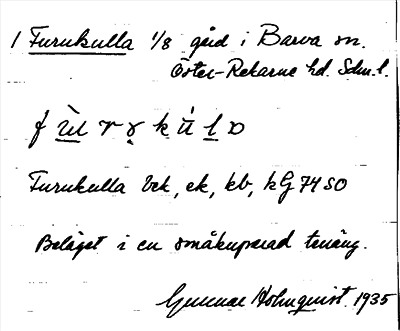 1 Furukulla 1/8 gård i Barva sn.
Öster-Rekarne hd. Sdm. l.
Furukulla bek, ek, kb, kG 74 SO
Beläget i en småkuperad terräng.
Gunnar Holmquist 1935